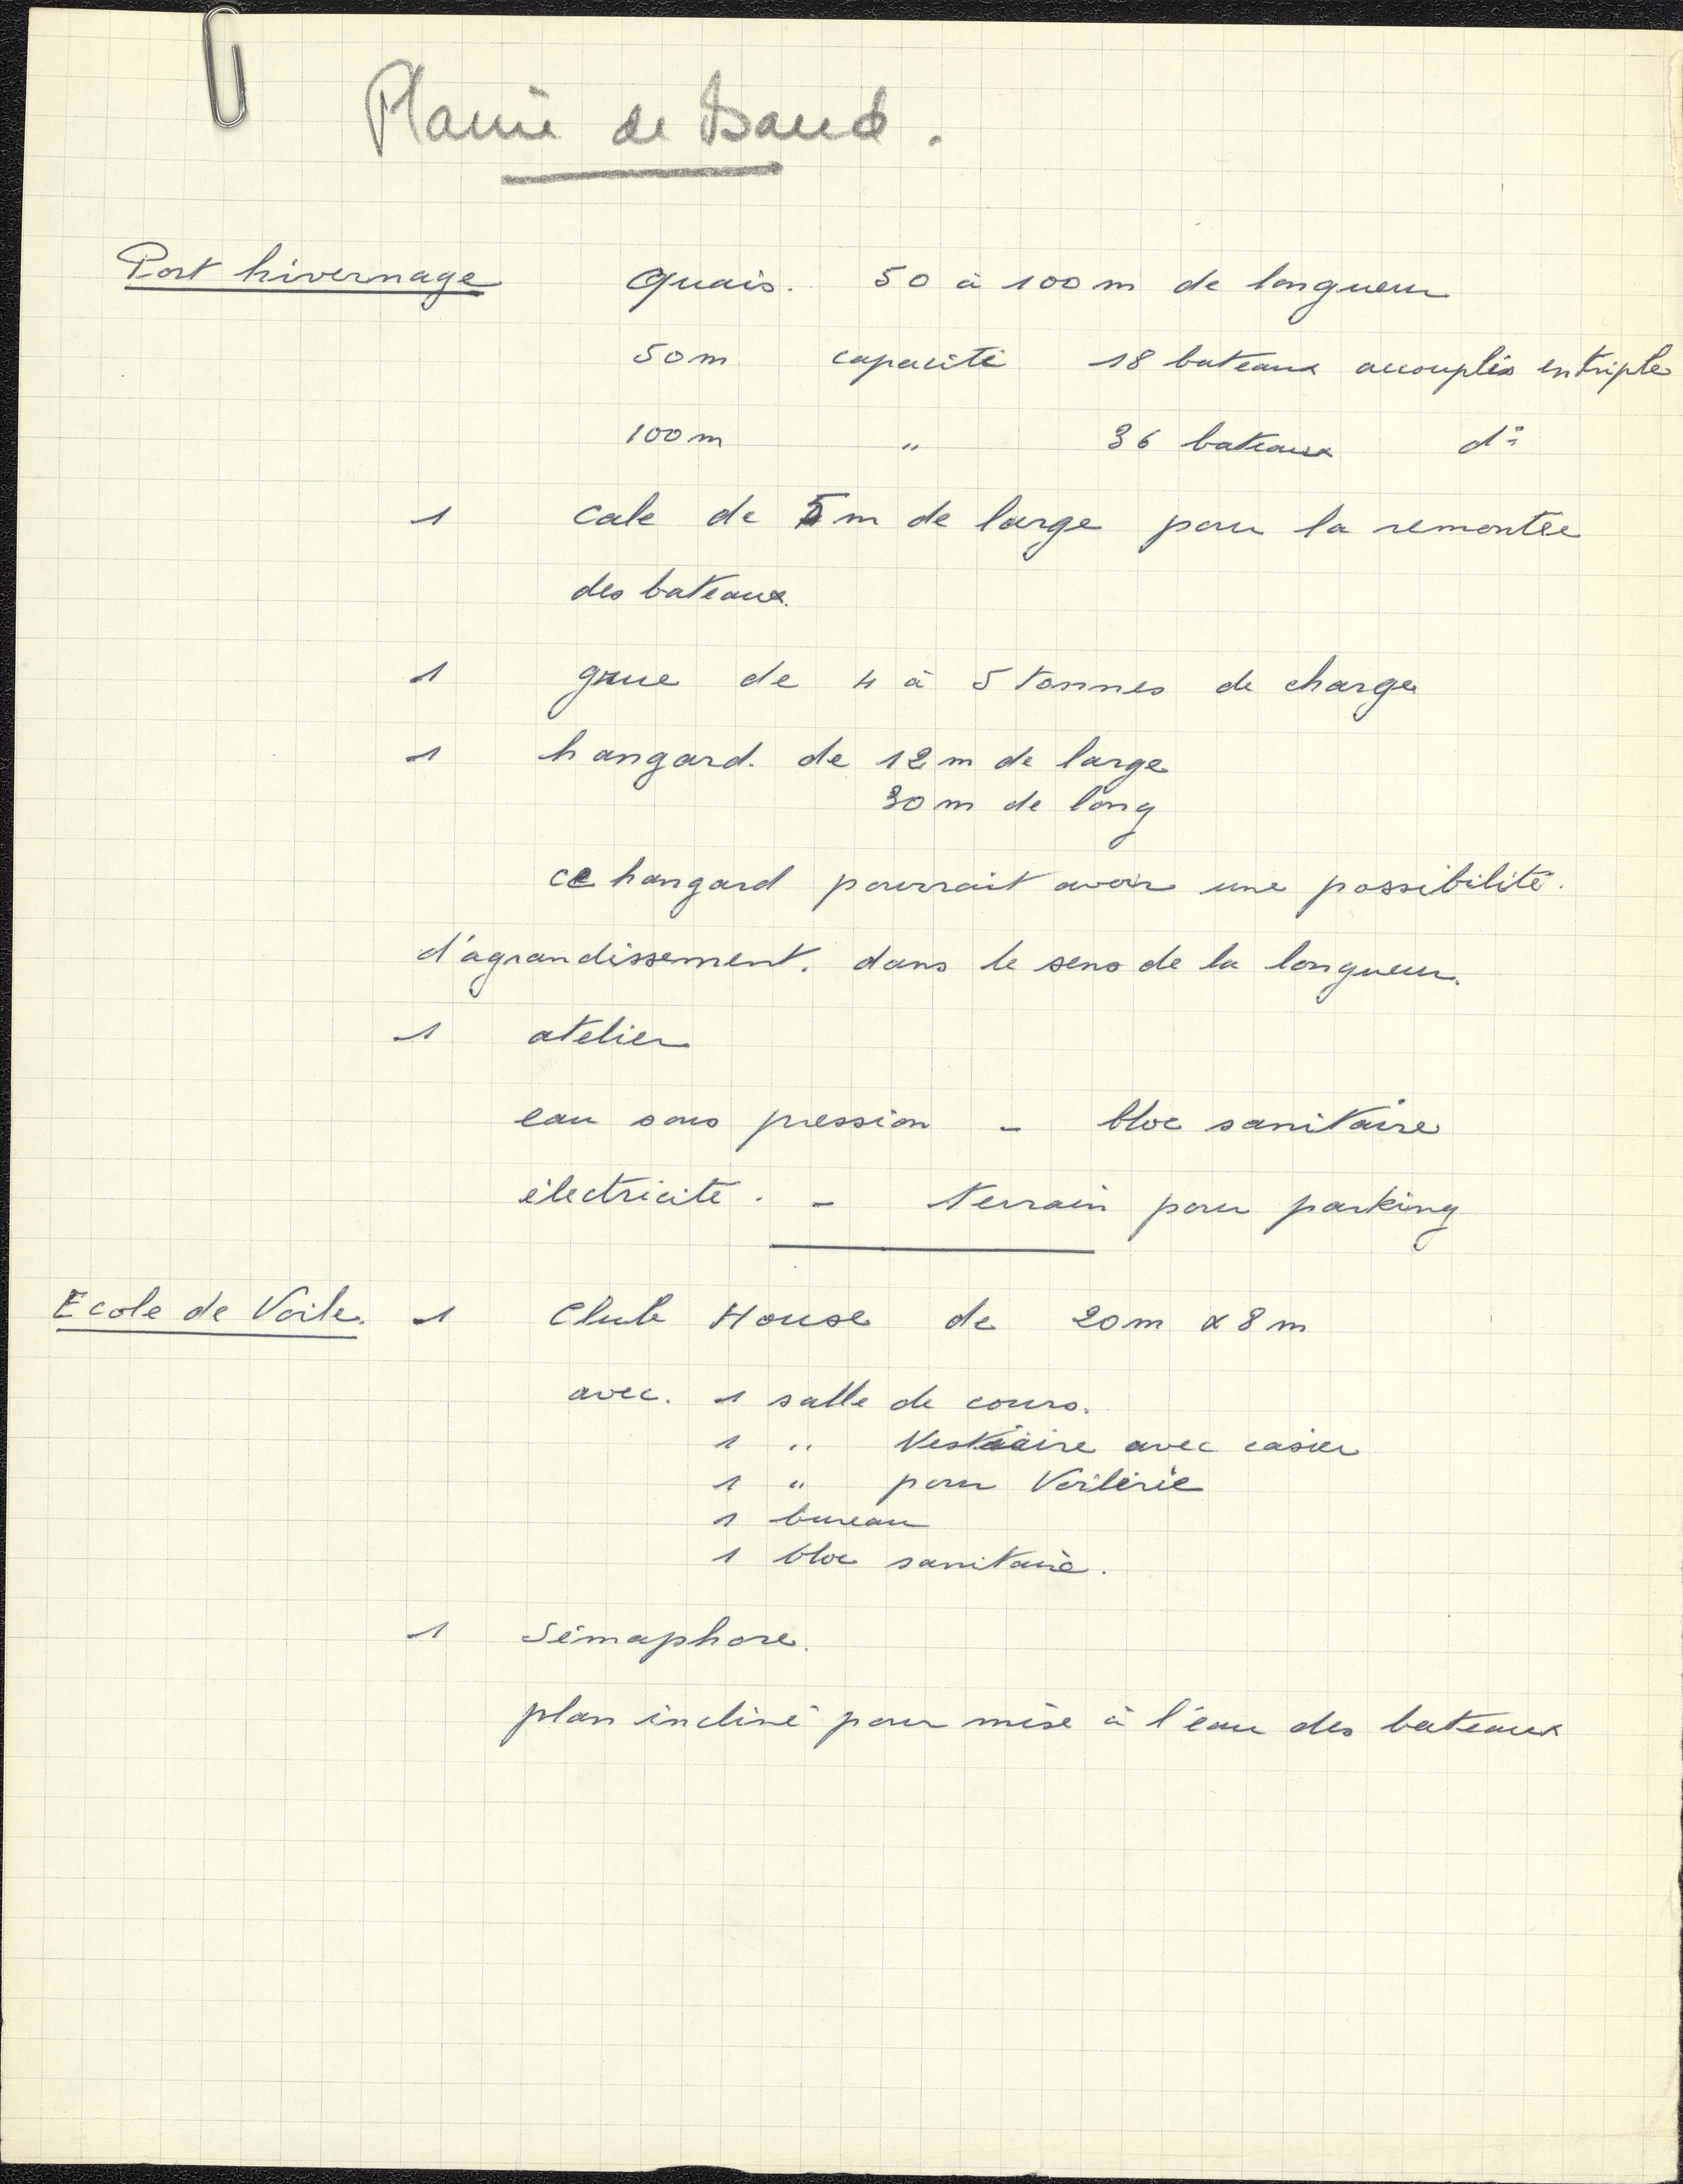 Plaine de Baud.
Port hivernage Quais. 50 à 100m de longueur
50m capacité 18 bateaux accouplés en triple
100m " 36 bateaux d°
1 cale de 5m de large pour la remontée
des bateaux.
1 grue de 4 à 5 tonnes de charge
1 hangard. de 12m de large
30m de long
ce hangard pourrait avoir une possibilité.
d'agrandissement. dans le sens de la longueur.
1 atelier
eau sous pression - bloc sanitaire
électricité. - terrain pour parking
Ecole de Voile. 1 Club House de 20m x 8m
avec. 1 salle de cours.
1 " Vestiaire avec casier
1 " pour Voilerie
1 bureau
1 bloc sanitaire.
1 Sémaphore.
plan incliné pour mise à l'eau des bateaux